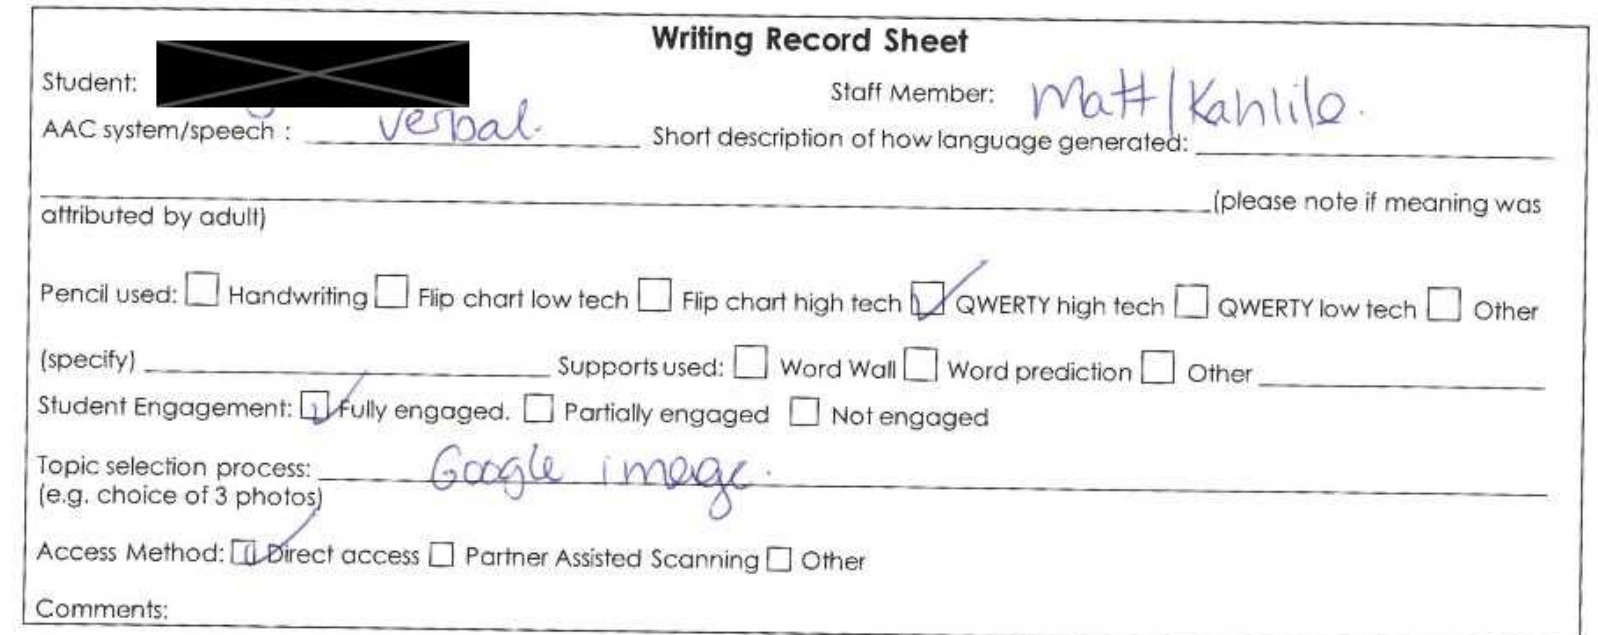 Writing Record Sheet
Student:
Staff Member: Matt/Kahlile.
AAC system/speech : verbal. Short description of how language generated:
(please note if meaning was
attributed by adult)
Pencil used: Handwriting Flip chart low tech Flip chart high tech QWERTY high tech QWERTY low tech Other
(specify) Supports used: Word Wall Word prediction Other
Student Engagement: Fully engaged. Partially engaged Not engaged
Topic selection process: Google image.
(e.g. choice of 3 photos)
Access Method: Direct access Partner Assisted Scanning Other
Comments: